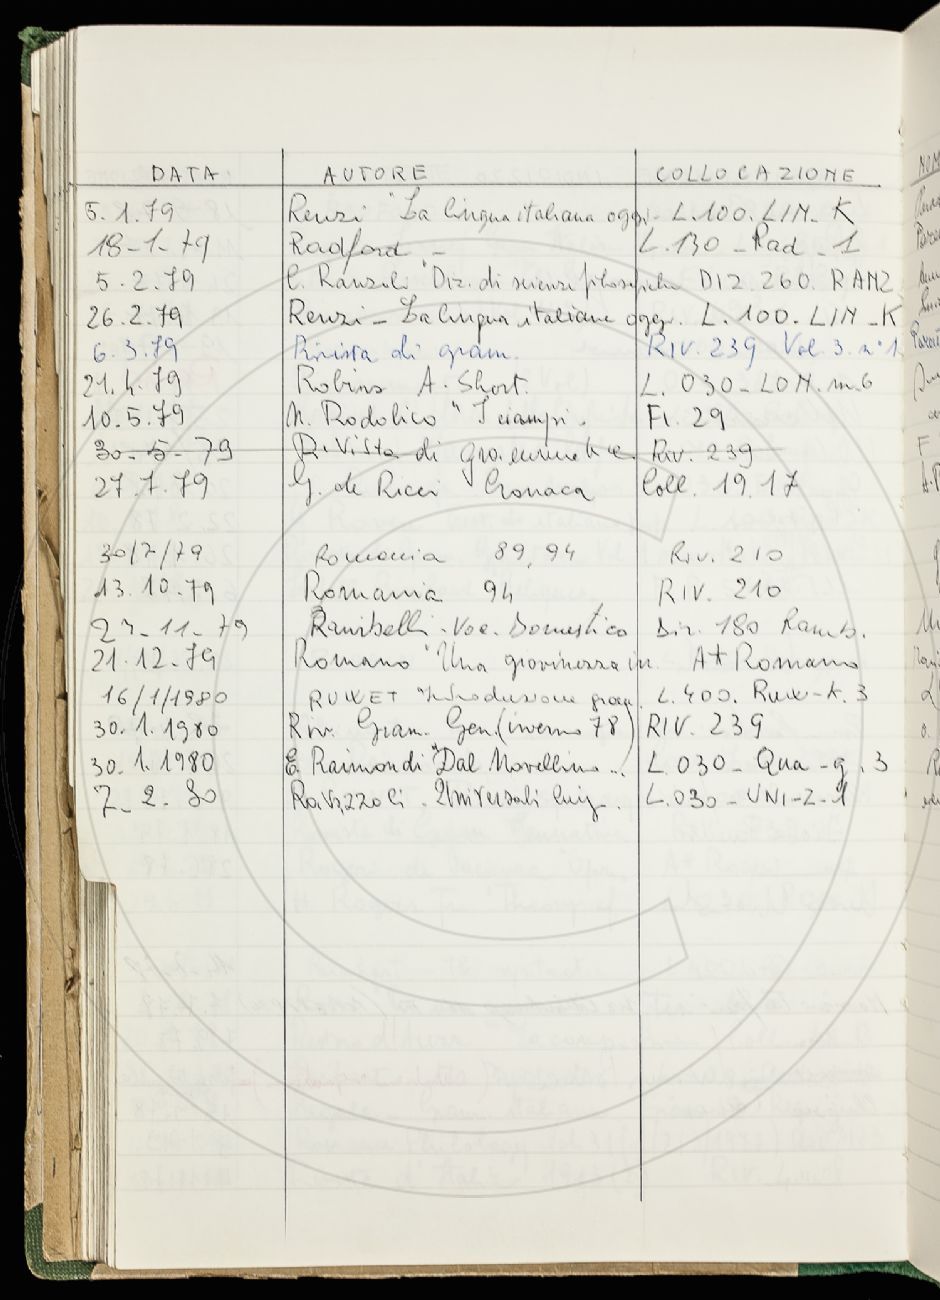 DATA AUTORE COLLOCAZIONE
5.1.79 Renzi "La lingua italiana oggi. L.100. LIN. K
18-1-79 Radford - L.130 - Rad - 1
5.2.79 C. Ranzoli "Diz. di scienze filosofiche DIZ. 260. RANZ
26.2.79 Renzi - La lingua italiana oggi. L. 100. LIN - K
6.3.79 Rivista di gram. RIV. 239 Vol. 3. n° 1
21.4.79 Robins A. Short. L. 030 - LON. m. 6
10.5.79 N. Rodolico "I ciompi. Fi. 29
30-5-79 Rivista di grammatica Riv. 239
27.7.79 G. de Ricci Cronaca Coll. 19.17
30/7/79 Romania 89, 94 Riv. 210
13.10.79 Romania 94 RIV. 210
27-11-79 Rambelli - Voc. Domestico Diz. 180 Ramb.
21.12.79 Romano "Una giovinezza in A* Romano
16/1/1980 RUWET "Introduzione gram. L. 400. Ruw-k. 3
30.1.1980 Riv. Gram. Gen. (inverno 78) RIV. 239
30.1.1980 E. Raimondi "Dal Novellino.. L. 030 - Qua - q. 3
7-2-80 Ravazzoli. Universali ling. L. 030 - UNI - Z - 1